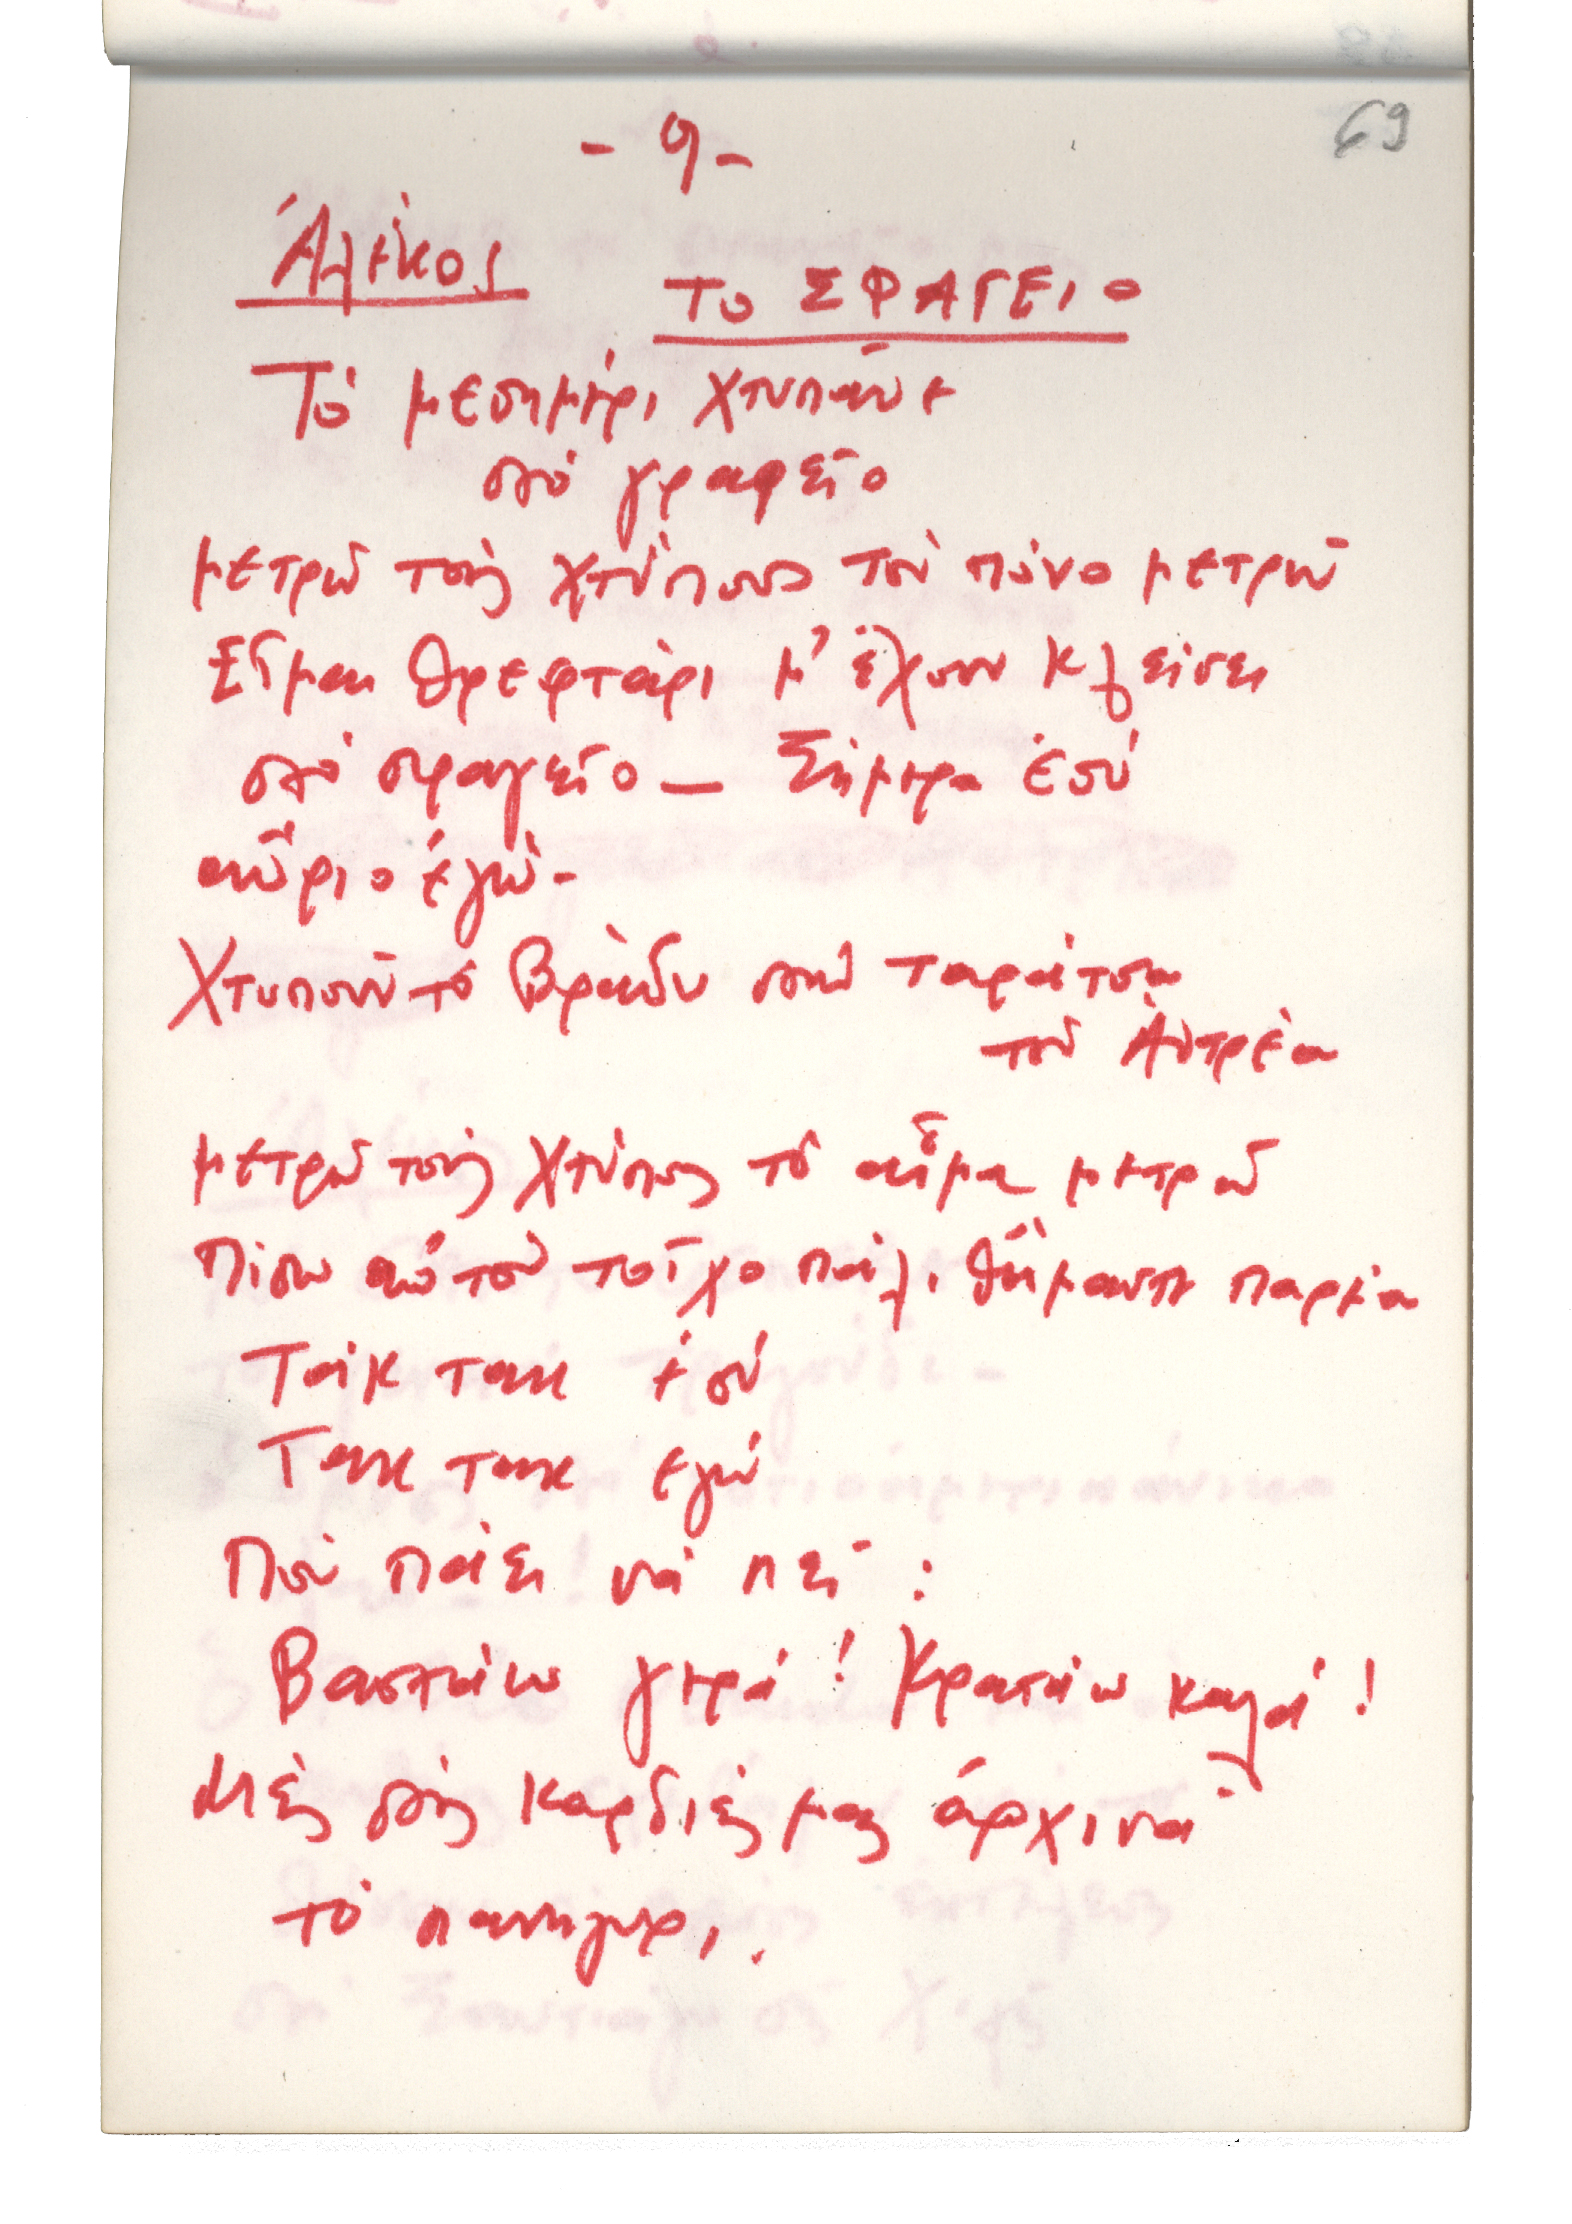 69
- 9 -
Ἀλέκος
Το ΣΦΑΓΕΙΟ
Τό μεσημέρι χτυπᾶνε
στό γραφεῖο
μετρῶ τούς χτύπους τόν πόνο μετρῶ
Εἶμαι θρεφτάρι μ' ἔχουν κλείσει
στό σφαγεῖο — Σήμερα ἐσύ
αὔριο ἐγώ -
Χτυποῦν τό βράδυ στήν ταράτσα
τόν Ἀντρέα
μετρῶ τούς χτύπους τό αἷμα μετρῶ
Πίσω ἀπό τόν τοῖχο πάλι θἄμαστε παρέα
Τάκ τακ ἐσύ
Τακ τακ εγώ
Πού πάει νά πεῖ :
Βαστάω γερά ! Κρατάω καλά !
Μές στίς καρδιές μας ἀρχινᾶ
τό πανηγύρι .